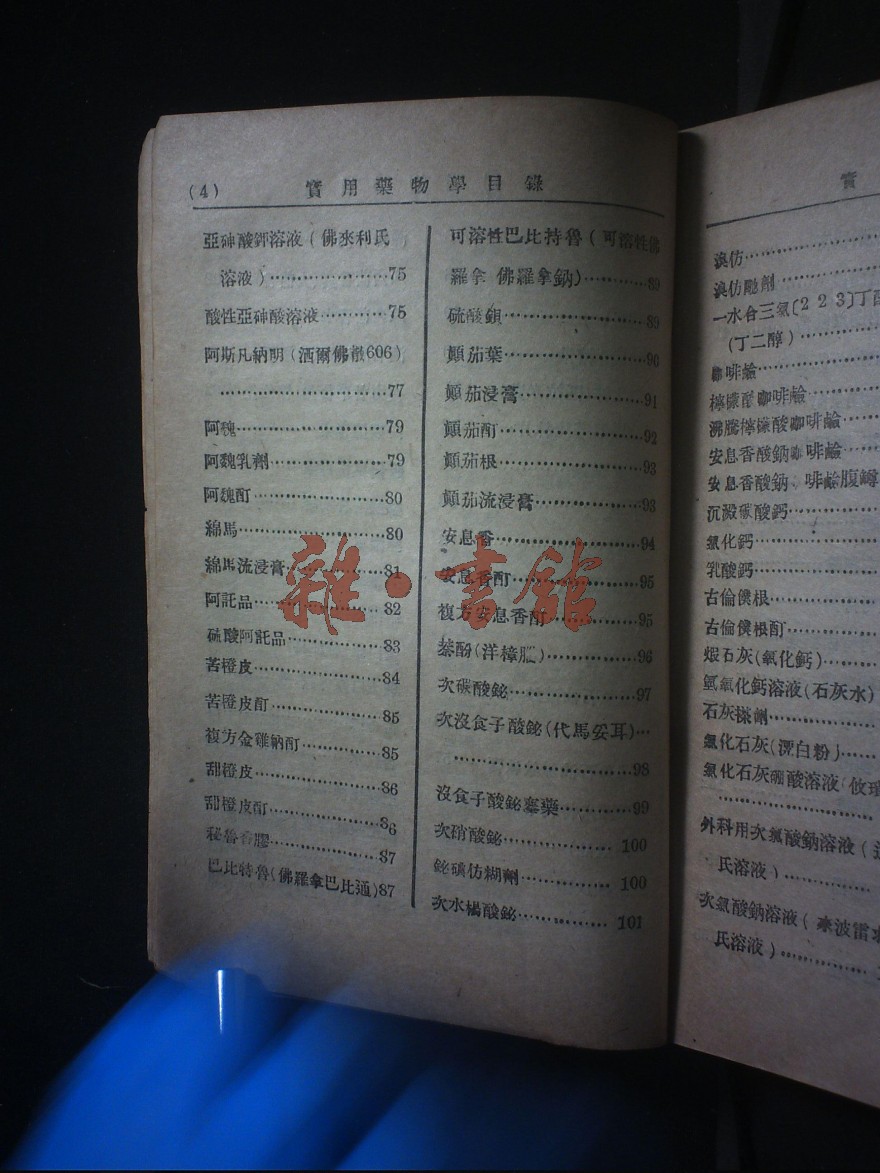 (4) 實用藥物學目錄
亞砷酸鉀溶液(佛來利氏
溶液)…………………75
酸性亞砷酸溶液…………75
阿斯凡納明(洒爾佛散606)
…………………………77
阿魏…………………79
阿魏乳劑………………79
阿魏酊…………………80
綿馬……………………80
綿馬流浸膏……………81
阿託品…………………82
硫酸阿託品……………83
苦橙皮…………………84
苦橙皮酊………………85
複方金雞納酊…………85
甜橙皮…………………86
甜橙皮酊………………86
秘魯香膠………………87
巴比特魯(佛羅拿巴比通)87
可溶性巴比特魯(可溶性佛
羅拿 佛羅拿鈉)…………89
硫酸鋇…………………89
顛茄葉…………………90
顛茄浸膏………………91
顛茄酊…………………92
顛茄根…………………93
顛茄流浸膏……………93
安息香…………………94
安息香酊………………95
複方安息香酊…………95
萘酚(洋樟腦)…………96
次碳酸鉍………………97
次沒食子酸鉍(代馬妥耳)…
…………………………98
沒食子酸鉍塞藥………99
次硝酸鉍………………100
鉍碘仿糊劑……………100
次水楊酸鉍……………101
實
溴仿…………
溴仿醑劑…………
一水合三氯〔2 2 3〕丁醇
(丁二醇)…………
咖啡鹼…………
檸檬酸咖啡鹼…………
沸騰檸檬酸咖啡鹼……
安息香酸鈉咖啡鹼……
安息香酸鈉 啡鹼腹
沉澱碳酸鈣…………
氯化鈣…………
乳酸鈣…………
古倫僕根…………
古倫僕根酊…………
煅石灰(氧化鈣)………
氫氧化鈣溶液(石灰水)
石灰搽劑…………
氯化石灰(漂白粉)……
氯化石灰硼酸溶液(攸瑣
…………
外科用次氯酸鈉溶液(
氏溶液)…………
次氯酸鈉溶液(來波雷
氏溶液)…………
雜·書館